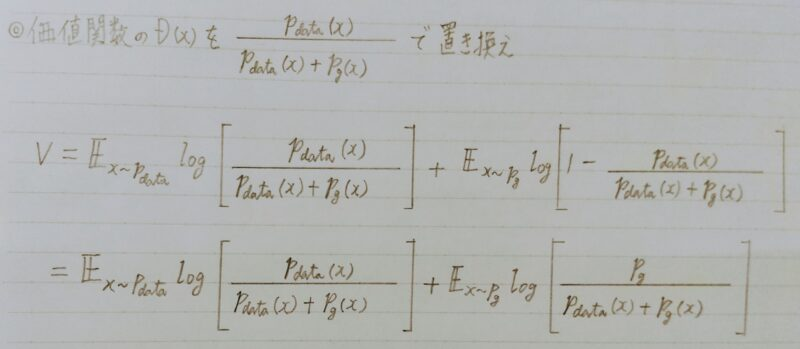 ◎価値関数のD(x)を \frac{p_{data}(x)}{p_{data}(x) + p_g(x)} で置き換え
V = 𝔼_{x~p_{data}} log [ \frac{p_{data}(x)}{p_{data}(x) + p_g(x)} ] + 𝔼_{x~p_g} log [ 1 - \frac{p_{data}(x)}{p_{data}(x) + p_g(x)} ]
= 𝔼_{x~p_{data}} log [ \frac{p_{data}(x)}{p_{data}(x) + p_g(x)} ] + 𝔼_{x~p_g} log [ \frac{p_g}{p_{data}(x) + p_g(x)} ]